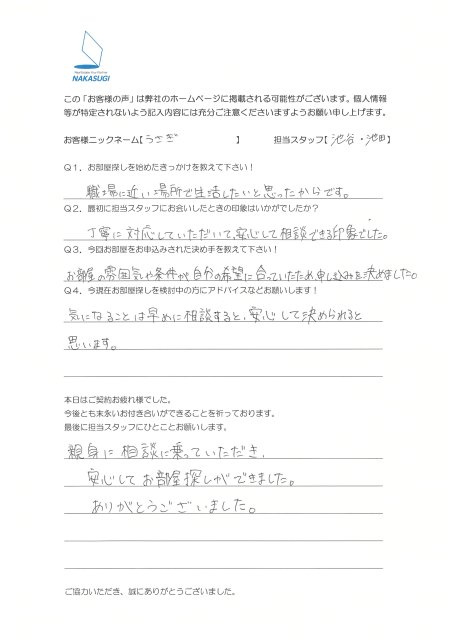 NAKASUGI
この「お客様の声」は弊社のホームページに掲載される可能性がございます。個人情報
等が特定されないよう記入内容には充分ご注意くださいますようお願い申し上げます。
お客様ニックネーム【うさぎ 】 担当スタッフ【池谷・池田】
Q１．お部屋探しを始めたきっかけを教えて下さい！
職場に近い場所で生活したいと思ったからです。
Q２．最初に担当スタッフにお会いしたときの印象はいかがでしたか？
丁寧に対応していただいて、安心して相談できる印象でした。
Q３．今回お部屋をお申込みされた決め手を教えて下さい！
お部屋の雰囲気や条件が自分の希望に合っていたため、申し込みを決めました。
Q４．今現在お部屋探しを検討中の方にアドバイスなどお願いします！
気になることは早めに相談すると、安心して決められると
思います。
本日はご契約お疲れ様でした。
今後とも末永いお付き合いができることを祈っております。
最後に担当スタッフにひとことお願いします。
親身に相談に乗っていただき、
安心してお部屋探しができました。
ありがとうございました。
ご協力いただき、誠にありがとうございました。